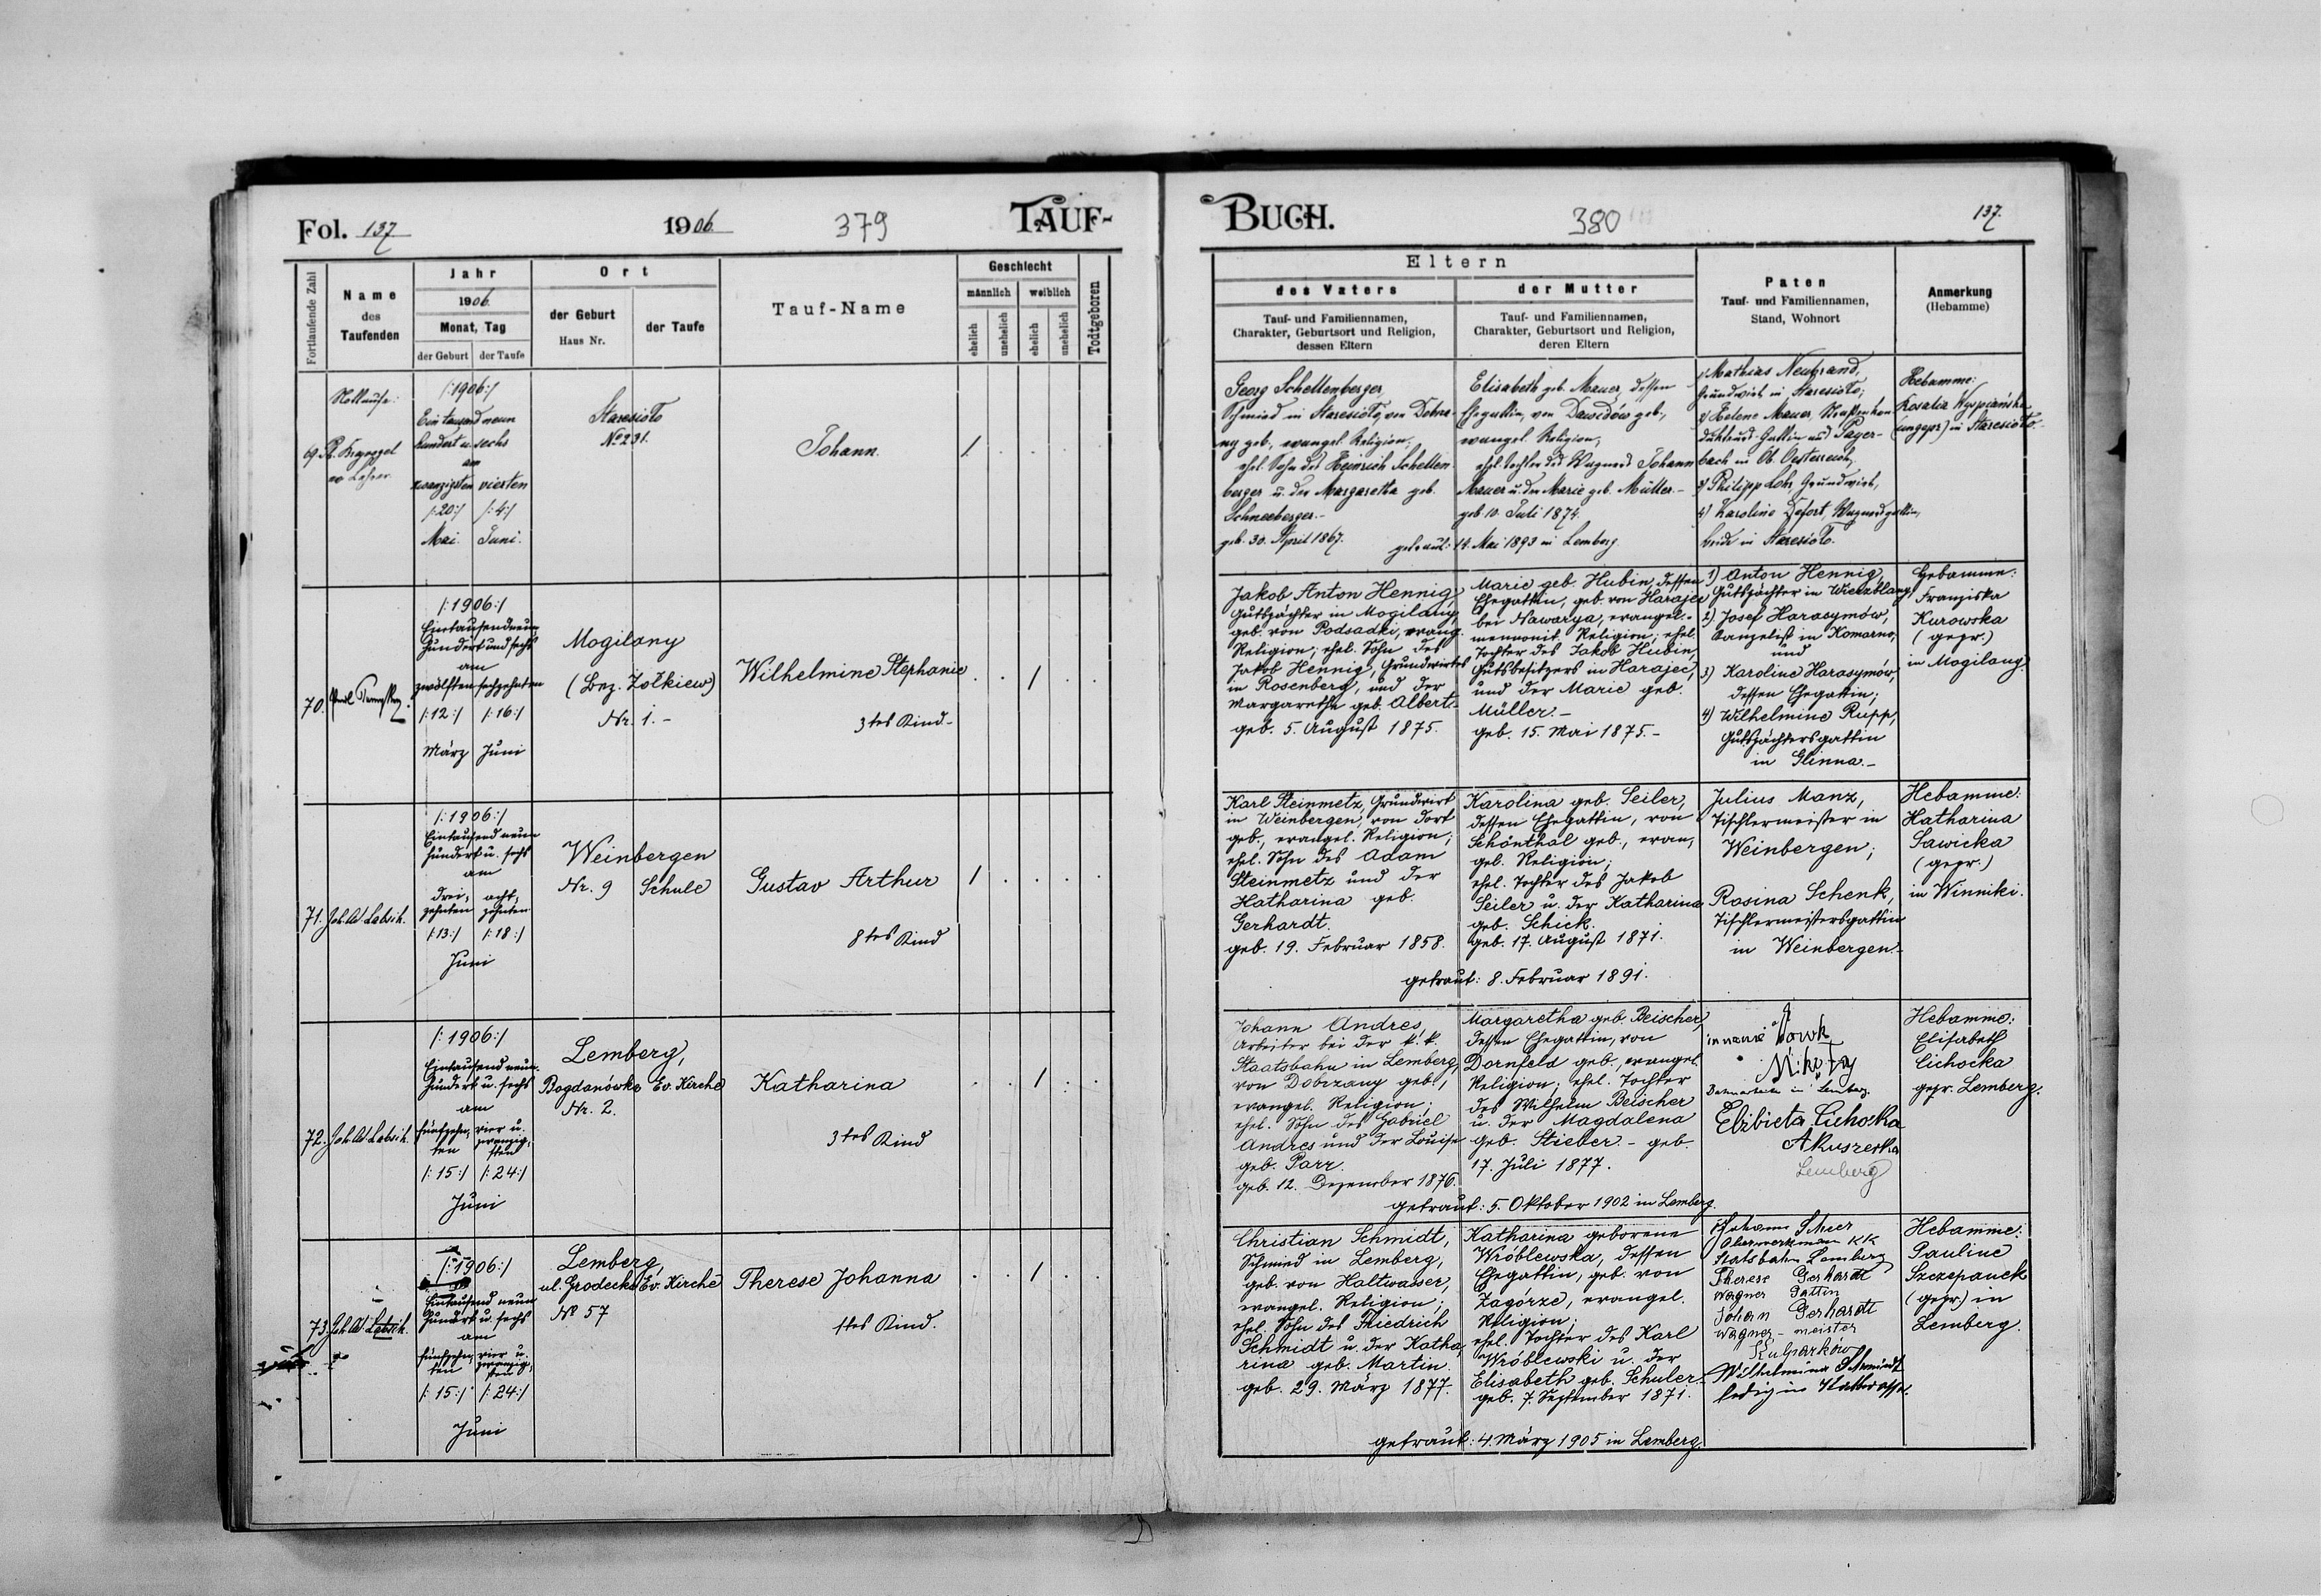 Fol. 137
1906
379
TAUF-
Fortlaufende Zahl
Name
des
Taufenden
Jahr
1906
Monat, Tag
der Geburt
der Taufe
Ort
der Geburt
Haus Nr.
der Taufe
Tauf-Name
Geschlecht
männlich
weiblich
ehelich
unehelich
ehelich
unehelich
Todtgeboren
69.
Lehrer
/:1906:/
Ein tausend neun
hundert u. sechs
am
zwanzigsten vierten
/:20:/ /:4:/
Mai. Juni.
Staresioło
No 231.
Johann.
/
70.
/:1906:/
Eintausendneun
hundert und sechs
am
zwölften sechzehnten
/:12:/ /:16:/
März Juni
Mogilany
(Bez. Żołkiew)
Nr. 1.-
Wilhelmine Stephanie
3tes Kind-
/
71.
/:1906:/
Eintausend neun
hundert u. sechs
am
drei- acht-
zehnten zehnten
/:13:/ /:18:/
Juni
Weinbergen
Nr. 9 Schule
Gustav Arthur
8tes Kind
/
72.
/:1906:/
Eintausend neun
hundert u. sechs
am
fünfzehn- vier u.
ten zwanzig-
sten
/:15:/ /:24:/
Juni
Lemberg,
Bogdanówka Ev. Kirche
Nr. 2.
Katharina
3tes Kind
/
73.
/:1906:/
Eintausend neun
hundert u. sechs
am
fünfzehn- vier u.
ten zwanzig-
sten
/:15:/ /:24:/
Juni
Lemberg,
ul. Grodecka Ev. Kirche
No 57
Therese Johanna
1tes Kind.
/
BUCH.
380
137.
Eltern
des Vaters
Tauf- und Familiennamen,
Charakter, Geburtsort und Religion,
dessen Eltern
der Mutter
Tauf- und Familiennamen,
Charakter, Geburtsort und Religion,
deren Eltern
Paten
Tauf- und Familiennamen,
Stand, Wohnort
Anmerkung
(Hebamme)
Georg Schellenberger,
Schmied in Staresioło, von Dobrza-
ny geb., evangel. Religion,
ehel. Sohn des Heinrich Schellen-
berger u. der Margaretha geb.
Schneeberger.-
geb. 30. April 1867.
Elisabeth geb. Mauer, dessen
Ehegattin, von Dawidów geb.,
evangel. Religion,
ehel. Tochter des Wagners Johann
Mauer u. der Marie geb. Müller.-
geb. 10. Juli 1874.
getraut: 14. Mai 1893 in Lemberg.
1) Mathias Neubrand,
Grundwirt in Staresioło;
2) Helene Mauer,
bach in Ob. Oesterreich,
3) Philipp Lohr, Grundwirt,
4) Karoline
beide in Staresioło.
Hebamme:
Rosalia Wyspiańska
(ungepr.) in Staresioło.
Jakob Anton Hennig,
Gutspächter in Mogilany,
geb. von Podsadki, evang.
Religion; ehel. Sohn des
Jakob Hennig, Grundwirtes
in Rosenberg, und der
Margarethe geb. Albert.-
geb. 5. August 1875.
Marie geb. Hubin, dessen
Ehegattin, geb. von Harajec
bei Nawarya, evangel.-
mennonit. Religion; ehel.
Tochter des Jakob Hubin,
Gutsbesitzers in Harajec,
und der Marie geb.
Müller.-
geb. 15. Mai 1875.-
1) Anton Hennig,
Gutspächter in
2) Josef Harasymów,
Canzelist in Komarno,
und
3) Karoline Harasymów,
dessen Ehegattin;
4) Wilhelmine Rupp,
Gutspächtersgattin
in Glinna.-
Hebamme:
Franziska
Kurowska
(gepr.)
in Mogilany.
Karl Steinmetz, Grundwirt
in Weinbergen, von dort
geb., evangel. Religion;
ehel. Sohn des Adam
Steinmetz und der
Katharina geb.
Gerhardt.
geb. 19. Februar 1858.
Karolina geb. Seiler,
dessen Ehegattin, von
Schönthal geb., evan-
gel. Religion;
ehel. Tochter des Jakob
Seiler u. der Katharina
geb. Schick.
geb. 17. August 1871.
getraut: 8. Februar 1891.
Julius Manz,
Tischlermeister in
Weinbergen;
Rosina Schenk,
Tischlermeistersgattin
in Weinbergen.-
Hebamme:
Katharina
Sawicka
(gepr.)
in Winniki.
Johann Andres,
Arbeiter bei der k. k.
Staatsbahn in Lemberg,
von Dobrzany geb.,
evangel. Religion;
ehel. Sohn des Gabriel
Andres und der Louise
geb. Parr.
geb. 12. Dezember 1876.
Margaretha geb. Beischer,
dessen Ehegattin, von
Dornfeld geb., evangel.
Religion; ehel. Tochter
des Wilhelm Beischer
u. der Magdalena
geb. Stieber.- geb.
17. Juli 1877.
getraut: 5. Oktober 1902 in Lemberg.
in Lemberg.
Elżbieta Cichocka
Akuszerka
Lemberg
Hebamme:
Elisabeth
Cichocka
gepr. Lemberg.
Christian Schmidt,
Schmied in Lemberg,
geb. von Kaltwasser,
evangel. Religion;
ehel. Sohn des Friedrich
Schmidt u. der Katha-
rina geb. Martin.
geb. 29. März 1877.
Katharina geborene
Wróblewska, dessen
Ehegattin, geb. von
Zagórze, evangel.
Religion;
ehel. Tochter des Karl
Wróblewski u. der
Elisabeth geb. Schuler.-
geb. 7. September 1871.
getraut: 4. März 1905 in Lemberg.
Johann Scheer
Oberwerkmann KK
Statsbahn Lemberg
Therese Gerhardt
Wagner Gattin
Johan Gerhardt
Wagner-meister
Kulparków
Wilhelmina Schmidt
ledig in Kaltwasser.
Hebamme:
Pauline
Szczepanek
(gepr.) in
Lemberg.